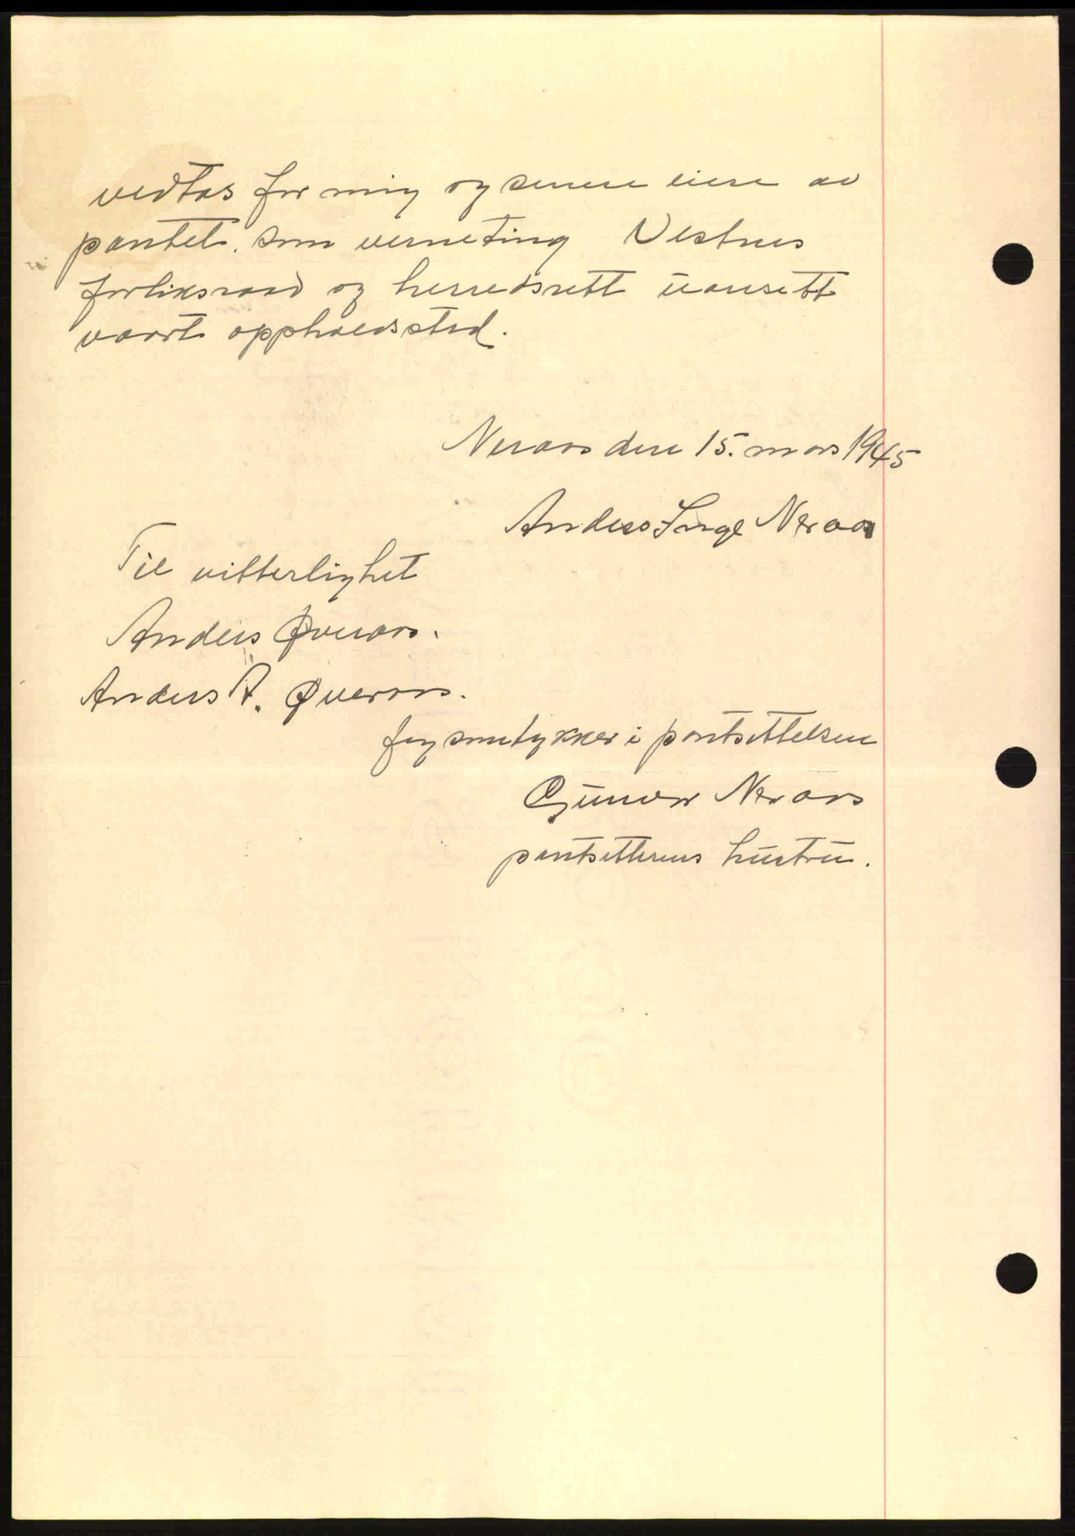 vedtas for mig og senere eiere av
pantet, som verneting Vestnes
forliksraad og herredsrett uansett
vaart oppholdssted.
Neraas den 15. mars 1945
Anders Inge Neraas
Til vitterlighet
Anders Øveraas.
Anders A. Øveraas.
Jeg samtykker i pantsettelsen
Gunvor Neraas
pantsetterens hustru.